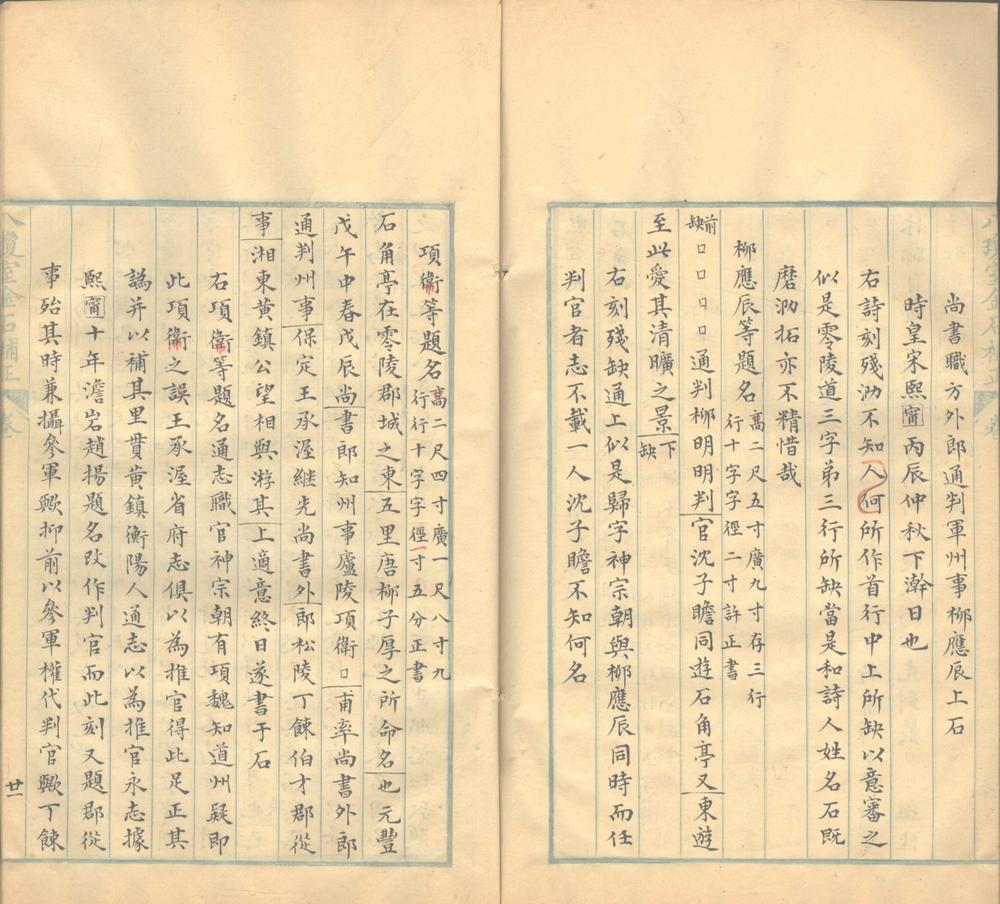 尚書職方外郎通判軍州事柳應辰上石
時皇宋熙甯丙辰仲秋下澣日也
右詩刻殘泐不知人何所作首行中上所缺以意審之
似是零陵道三字弟三行所缺當是和詩人姓名石既
磨泐拓亦不精惜哉
柳應辰等題名高二尺五寸廣九寸存三行行十字字徑二寸許正書
前缺□□□□通判柳明明判官沈子瞻同遊石角亭又東遊
至此愛其清曠之景下缺
右刻殘缺通上似是歸字神宗朝與柳應辰同時而任
判官者志不載一人沈子瞻不知何名
項衞等題名高二尺四寸廣一尺八寸九行行十字字徑一寸五分正書
石角亭在零陵郡城之東五里唐柳子厚之所命名也元豐
戊午中春戊辰尚書郎知州事廬陵項衞□甫率尚書外郎
通判州事保定王承渥繼先尚書外郎松陵丁餗伯才郡從
事湘東黃鎮公望相與游其上適意終日遂書于石
右項衞等題名通志職官神宗朝有項魏知道州疑即
此項衞之誤王承渥省府志俱以為推官得此足正其
譌并以補其里貫黃鎮衡陽人通志以為推官永志據
熙甯十年澹岩趙揚題名改作判官而此刻又題郡從
事殆其時兼攝參軍歟抑前以參軍權代判官歟丁餗
廿一